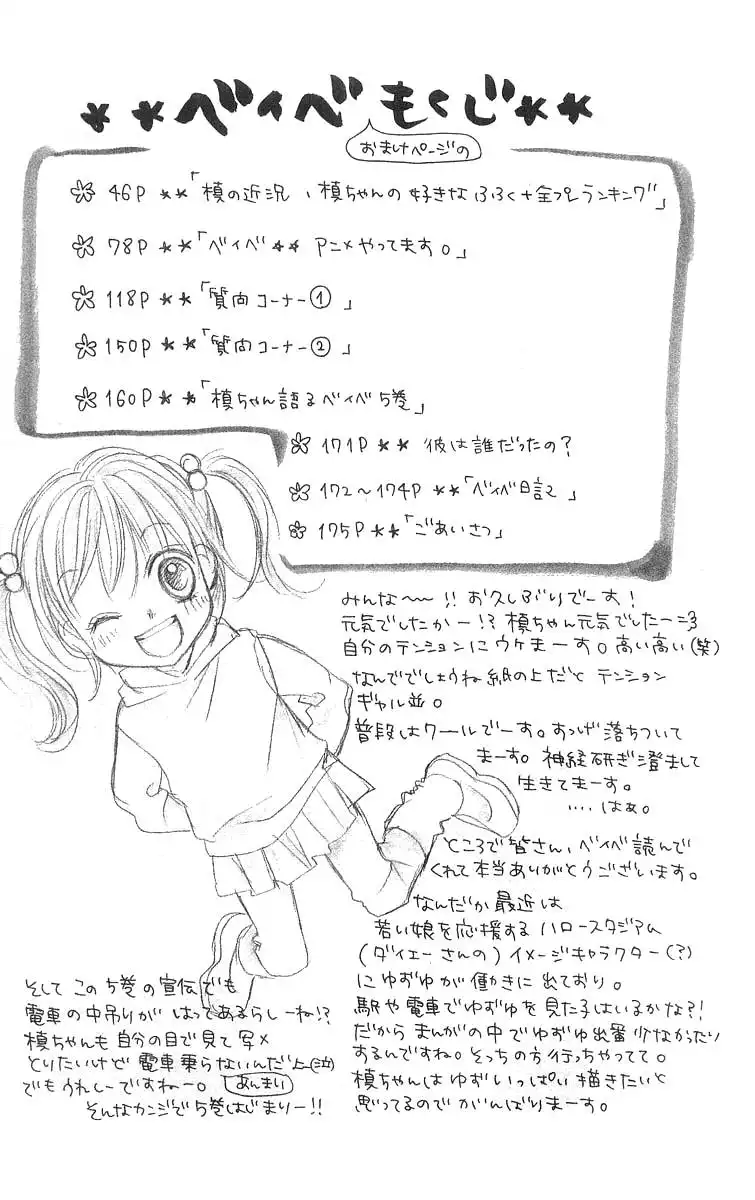 **ベイベもくじ**
おまけページの
46P **「槙の近況、槙ちゃんの好きなふく+全プレランキング」
78P **「ベイベ** アニメやってます。」
118P **「質問コーナー①」
150P **「質問コーナー②」
160P **「槙ちゃん語るベイベ5巻」
171P ** 彼は誰だったの?
172~174P **「ベイベ日記」
175P **「ごあいさつ」
みんな〜〜!! お久しぶりでーす!
元気でしたかー!? 槙ちゃん元気でしたー=3
自分のテンションにウケまーす。高い高い(笑)
なんででしょうね紙の上だと テンション
ギャル並。
普段はクールでーす。すっげ落ちついて
まーす。神経研ぎ澄まして
生きてまーす。
‥‥はぁ。
ところで皆さん、ベイベ読んで
くれて本当ありがとうございます。
なんだか最近は
若い娘を応援する ハロースタジアム
(ダイエーさんの)イメージキャラクター(?)
にゆずゆが働きに出ており。
駅や電車でゆずゆを見た子はいるかな?!
だからまんがの中でゆずゆ出番少なかったり
するんですね。そっちの方行っちゃってて。
槙ちゃんはゆずいっぱい描きたいと
思ってるのでがんばりまーす。
そして この5巻の宣伝でも
電車の中吊りが はってあるらしーね!?
槙ちゃんも自分の目で見て写メ
とりたいけど 電車乗らないんだよ(泣)
あんまり
でもうれしーですねー。
そんなカンジで5巻はじまりー!!